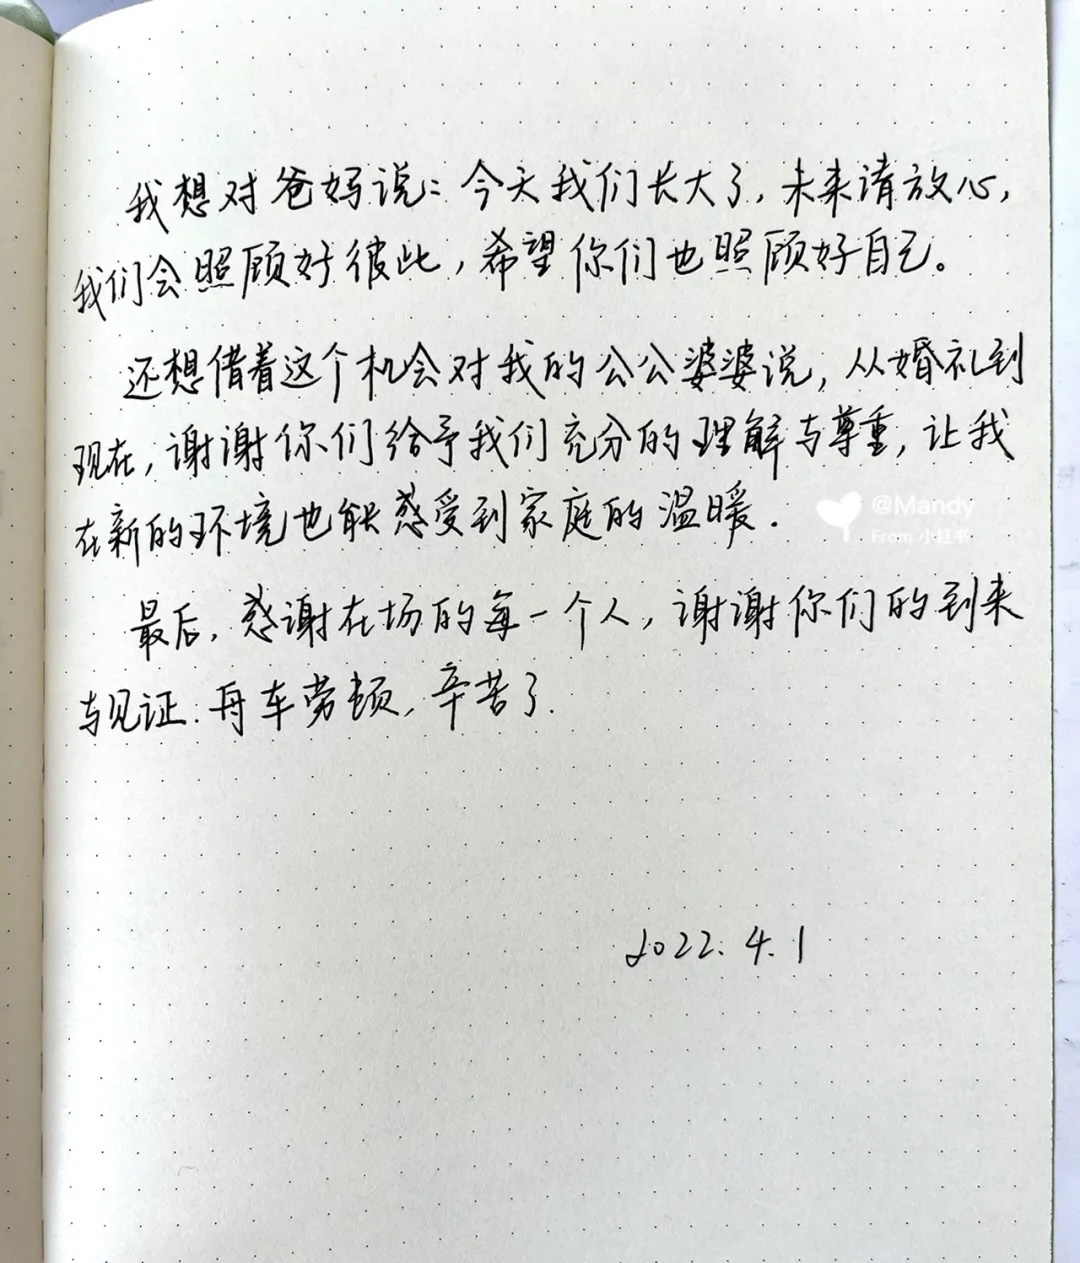 我想对爸妈说：今天我们长大了，未来请放心，
我们会照顾好彼此，希望你们也照顾好自己。
还想借着这个机会对我的公公婆婆说，从婚礼到
现在，谢谢你们给予我们充分的理解与尊重，让我
在新的环境也能感受到家庭的温暖.
@Mandy
From 小红书
最后，感谢在场的每一个人，谢谢你们的到来
与见证.舟车劳顿，辛苦了.
2022.4.1